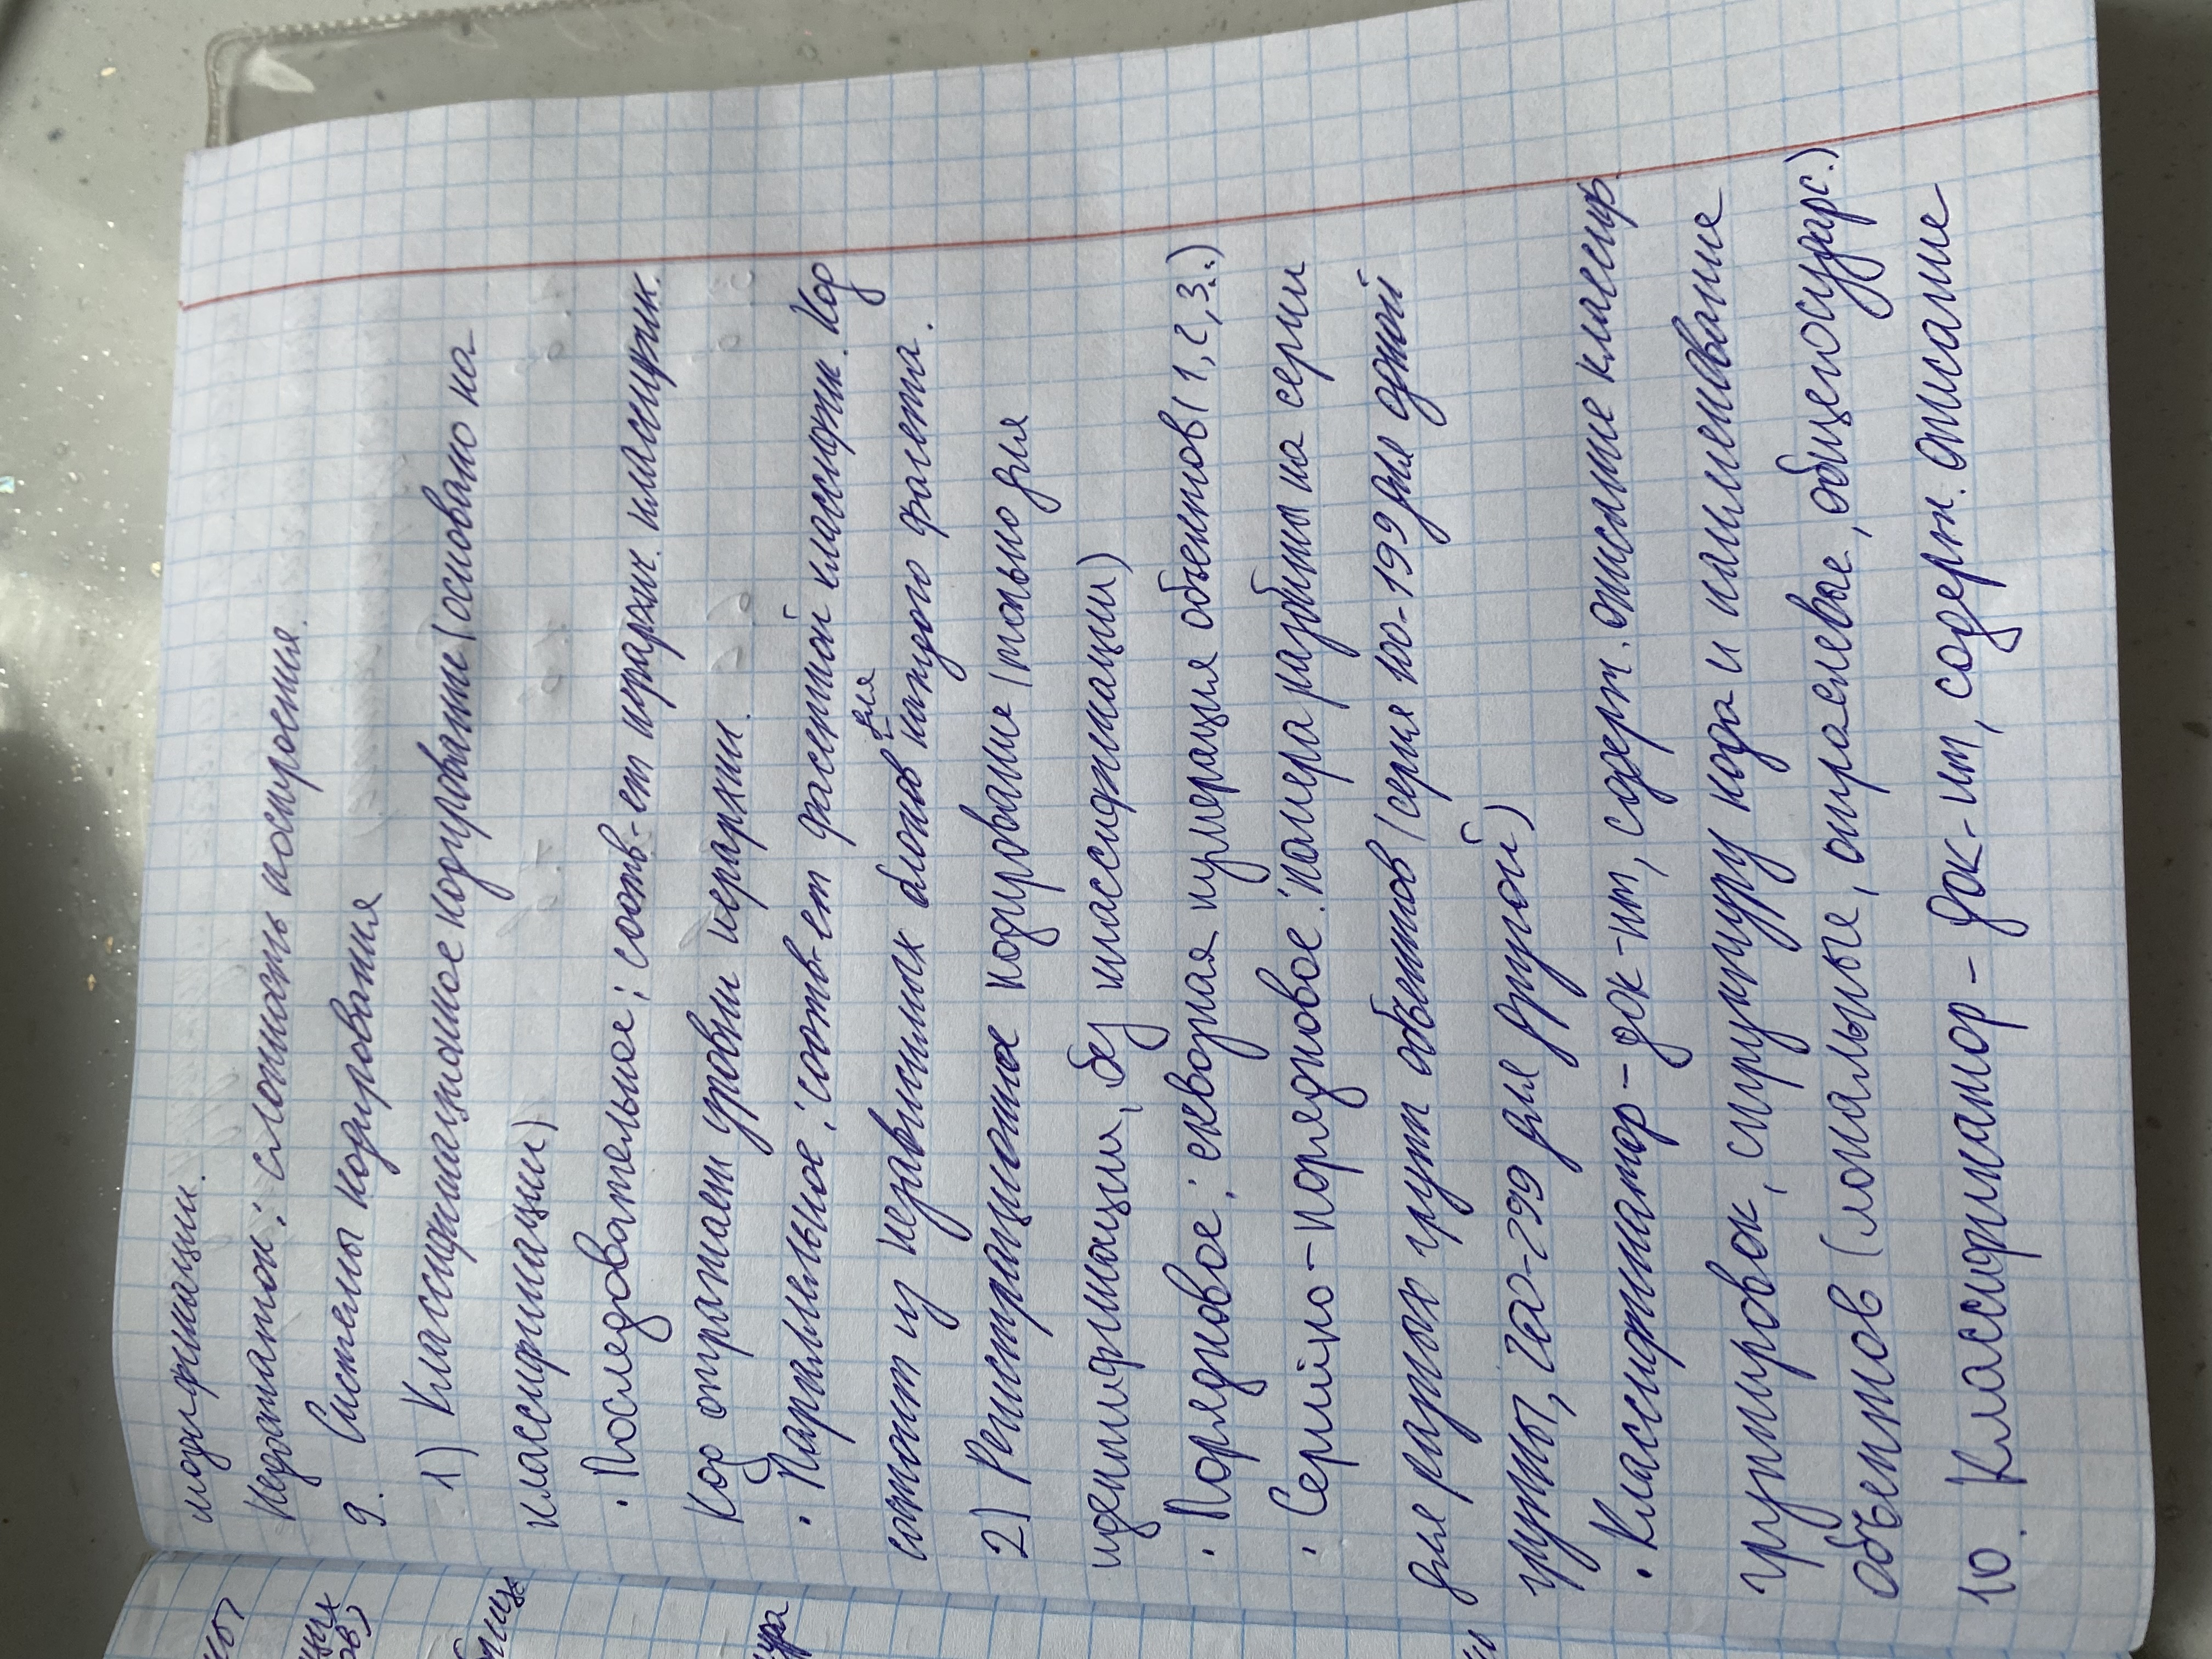 модификации.
Недостаток: сложность построения.
9. Системы кодирования
1) Классификационное кодирование (основано на
классификации)
· Последовательное: соотв-ет иерархич. классифик.
Код отражает уровни иерархии.
· Параллельное: соотв-ет фасетной классифик. Код
состоит из независимых блоков для каждого фасета.
2) Регистрационное кодирование (только для
идентификации, без классификации)
· Порядковое: сквозная нумерация объектов (1, 2, 3..)
· Серийно-порядковое: номера разбиты на серии
для разных групп объектов (серия 100-199 для одной
группы, 200-299 для другой)
· Классификатор - док-нт, содерж. описание классиф.
группировок, структуру кода и наименование
объектов (локальные, отраслевые, общегосударс.)
10. Классификатор - док-нт, содерж. описание
ны
ных
ов)
бниц.
ура